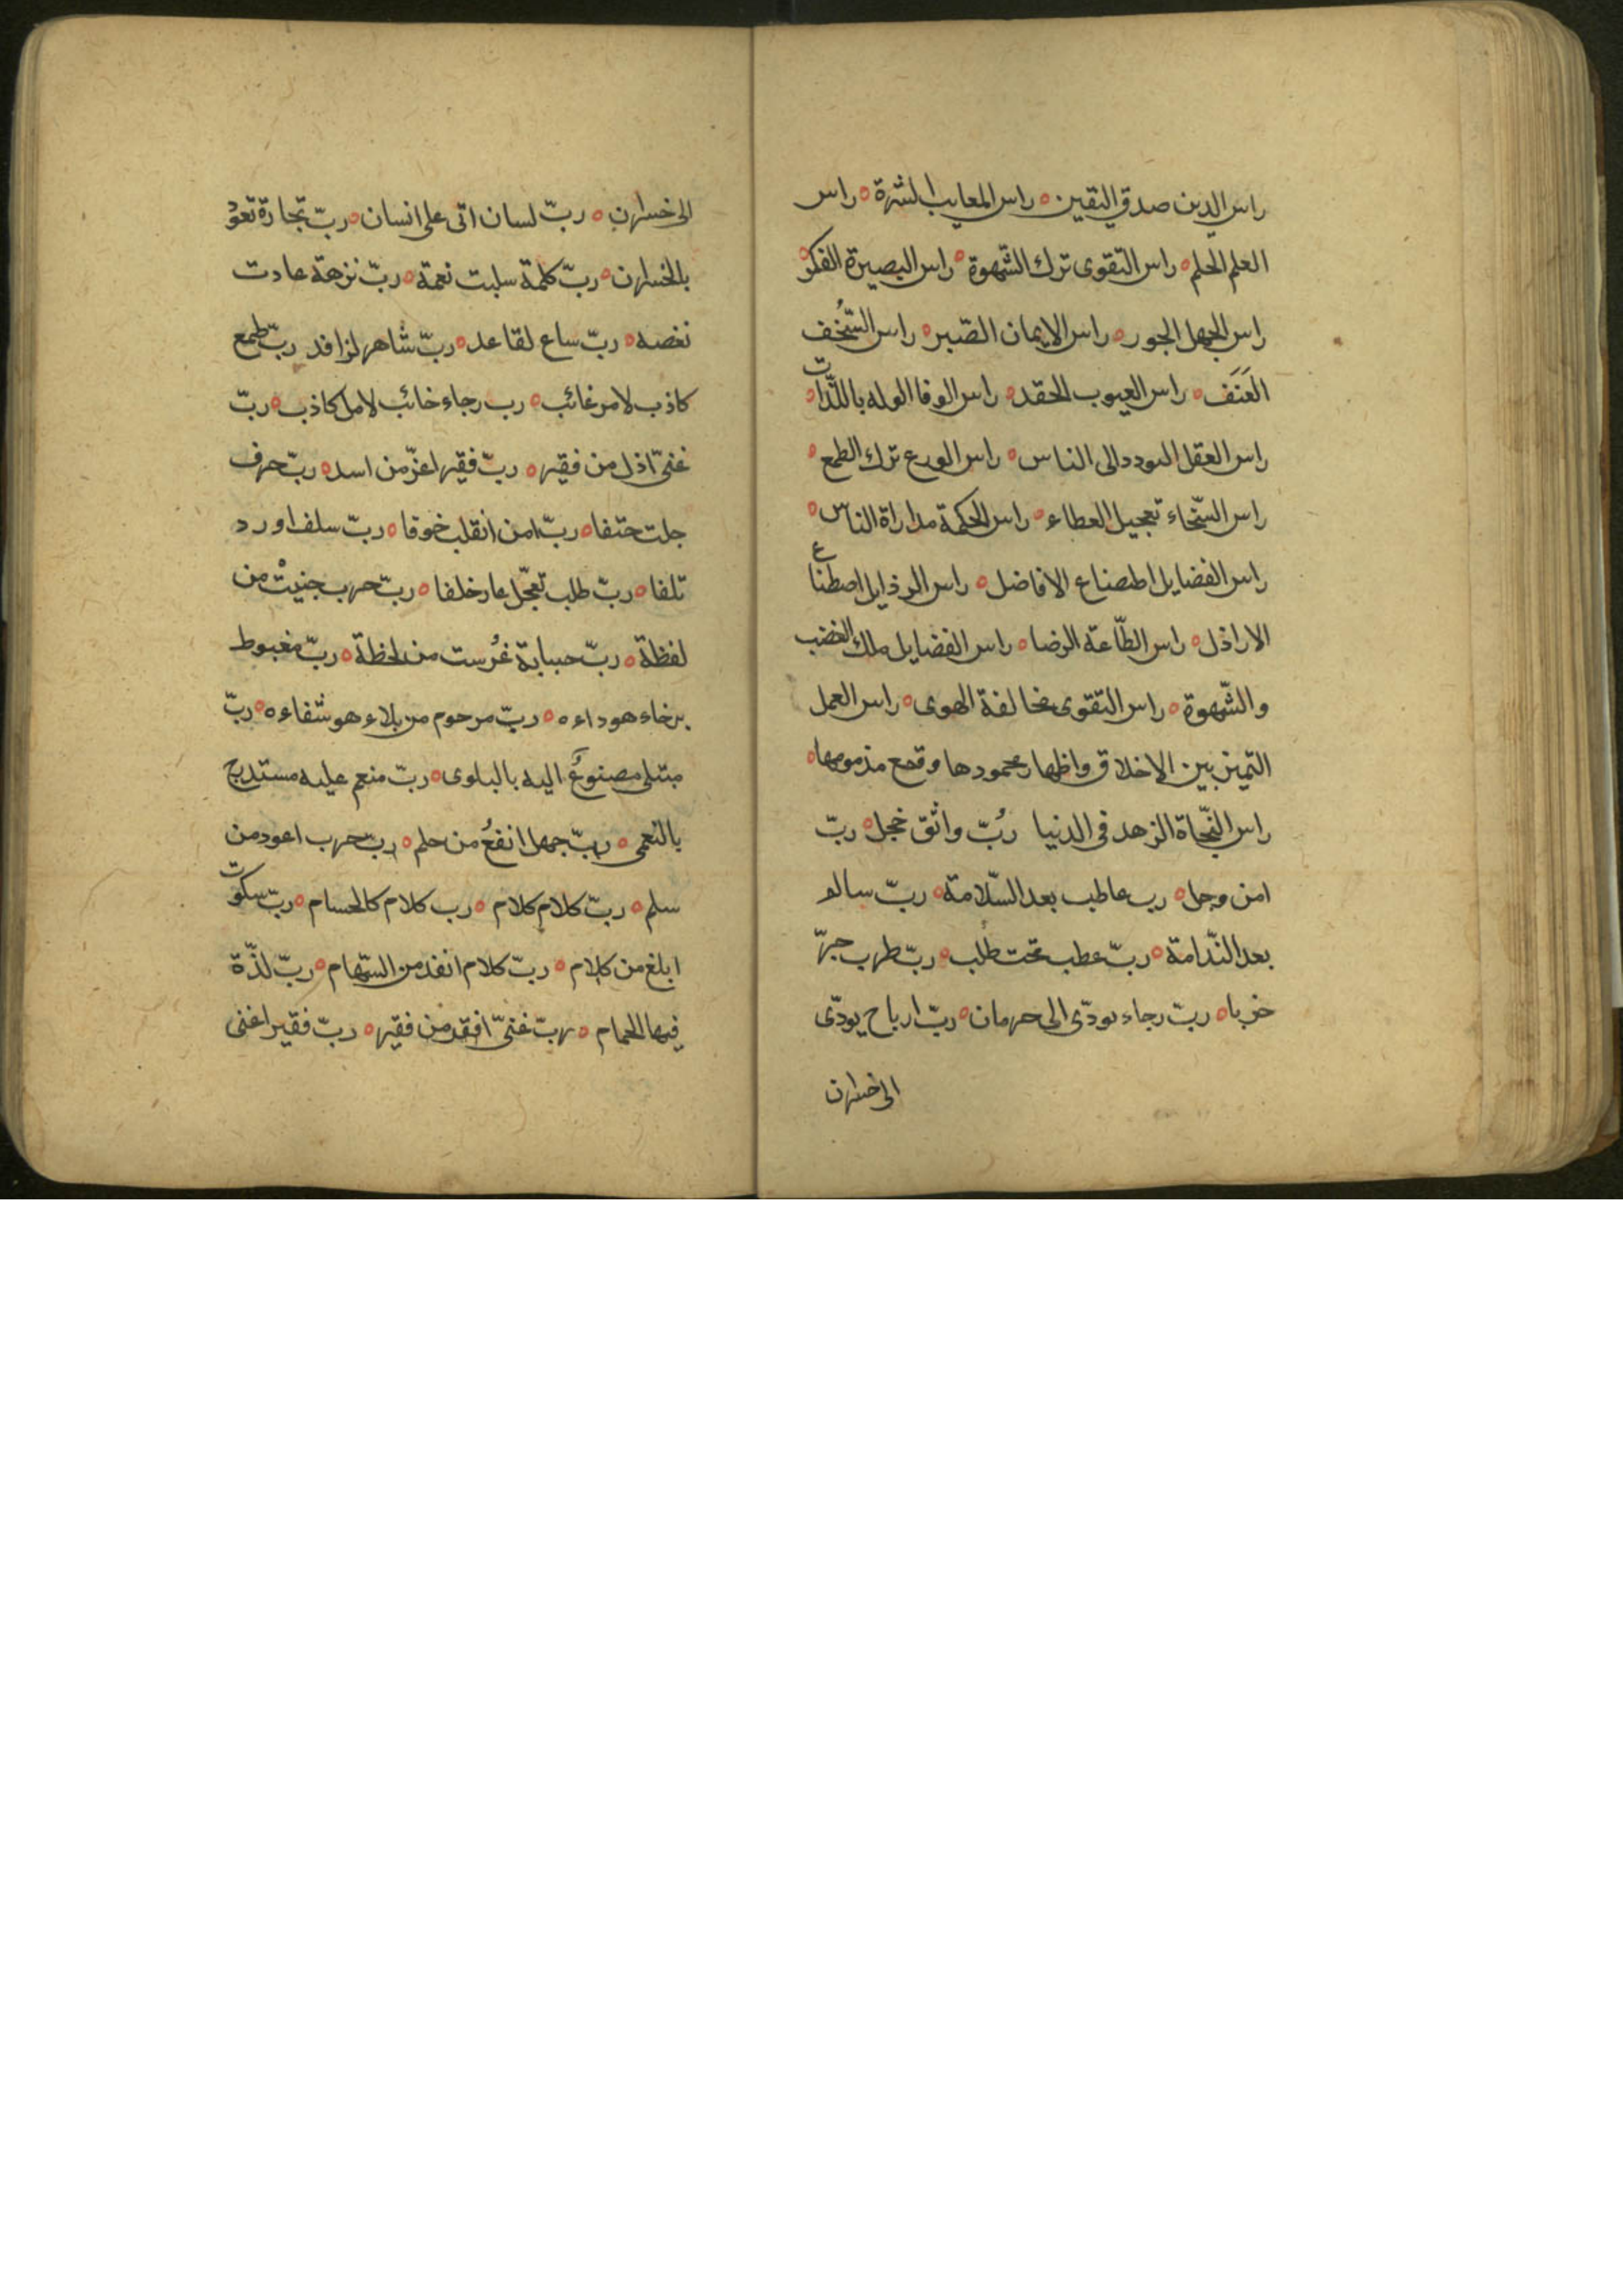 راس الدين صدق اليقين ه راس المعايب الشرة ه راس
العلم الحلم ه راس التقوى ترك الشهوة ه راس البصيرة الفكر ه
راس الجهل الجور ه راس الايمان الصّبر ه راس السّخف
العَنَف ه راس العيوب الحقد ه راس الوفا الوله باللّذات ه
راس العقل التودد الى الناس ه راس الورع ترك الطمع ه
راس السّخاء تعجيل العطاء ه راس الحكمة مداراة الناس ه
راس الفضايل اطصناع الافاضل ه راس الرذايل اصطناع
الاراذل ه راس الطّاعة الرضا ه راس الفضايل ملك الغضب
والشّهوة ه راس التقوى مخالفة الهوى ه راس العمل
التميز بين الاخلاق واظهار محمودها وقمع مذمومها ه
راس النجّاة الزهد فى الدنيا رُبّ واثق خجل ه ربّ
امن وجل ه رب عاطب بعد السّلامة ه ربّ سالم
بعد النّدامة ه ربّ عطب تحت طلب ه ربّ طرب جرّ
حربا ه ربّ رجاء يودّى الى حرمان ه ربّ ارباح يودّى
الى خسران
الى خسران ه ربّ لسان اتى على انسان ه ربّ تجارة تعود
بالخسران ه ربّ كلمة سلبت نعمة ه ربّ نزهة عادت
نغصه ه ربّ ساع لقاعد ه ربّ شاهر لزافد ربّ طمع
كاذب لامر غائب ه رب رجاء خائب لامل كاذب ه ربّ
غنىّ اذل من فقير ه ربّ فقير اعزّ من اسد ه ربّ حرف
جلت حتفا ه ربّ امن انقلب خوفا ه ربّ سلف اورد
تلفا ه ربّ طلب تعجّل عار خلفا ه ربّ حرب جنيتْ من
لفظة ه ربّ حبابة غُرست من لحظة ه ربّ مغبوط
برخاء هو داءه ه ربّ مرحوم من بلاء هو شفاءه ه ربّ
مبتلى مصنوعٌ اليه بالبلوى ه ربّ منعم عليه مستدرج
بالنعمى ه ربّ جهل انفعُ من حلم ه ربّ حرب اعود من
سلم ه ربّ كلام كلام ه رب كلام كالحسام ه ربّ سكوت
ابلغ من كلام ه ربّ كلام انفذ من السّهام ه ربّ لذّة
فيها الحمام ه ربّ غنىّ افقر من فقير ه ربّ فقير اغنى